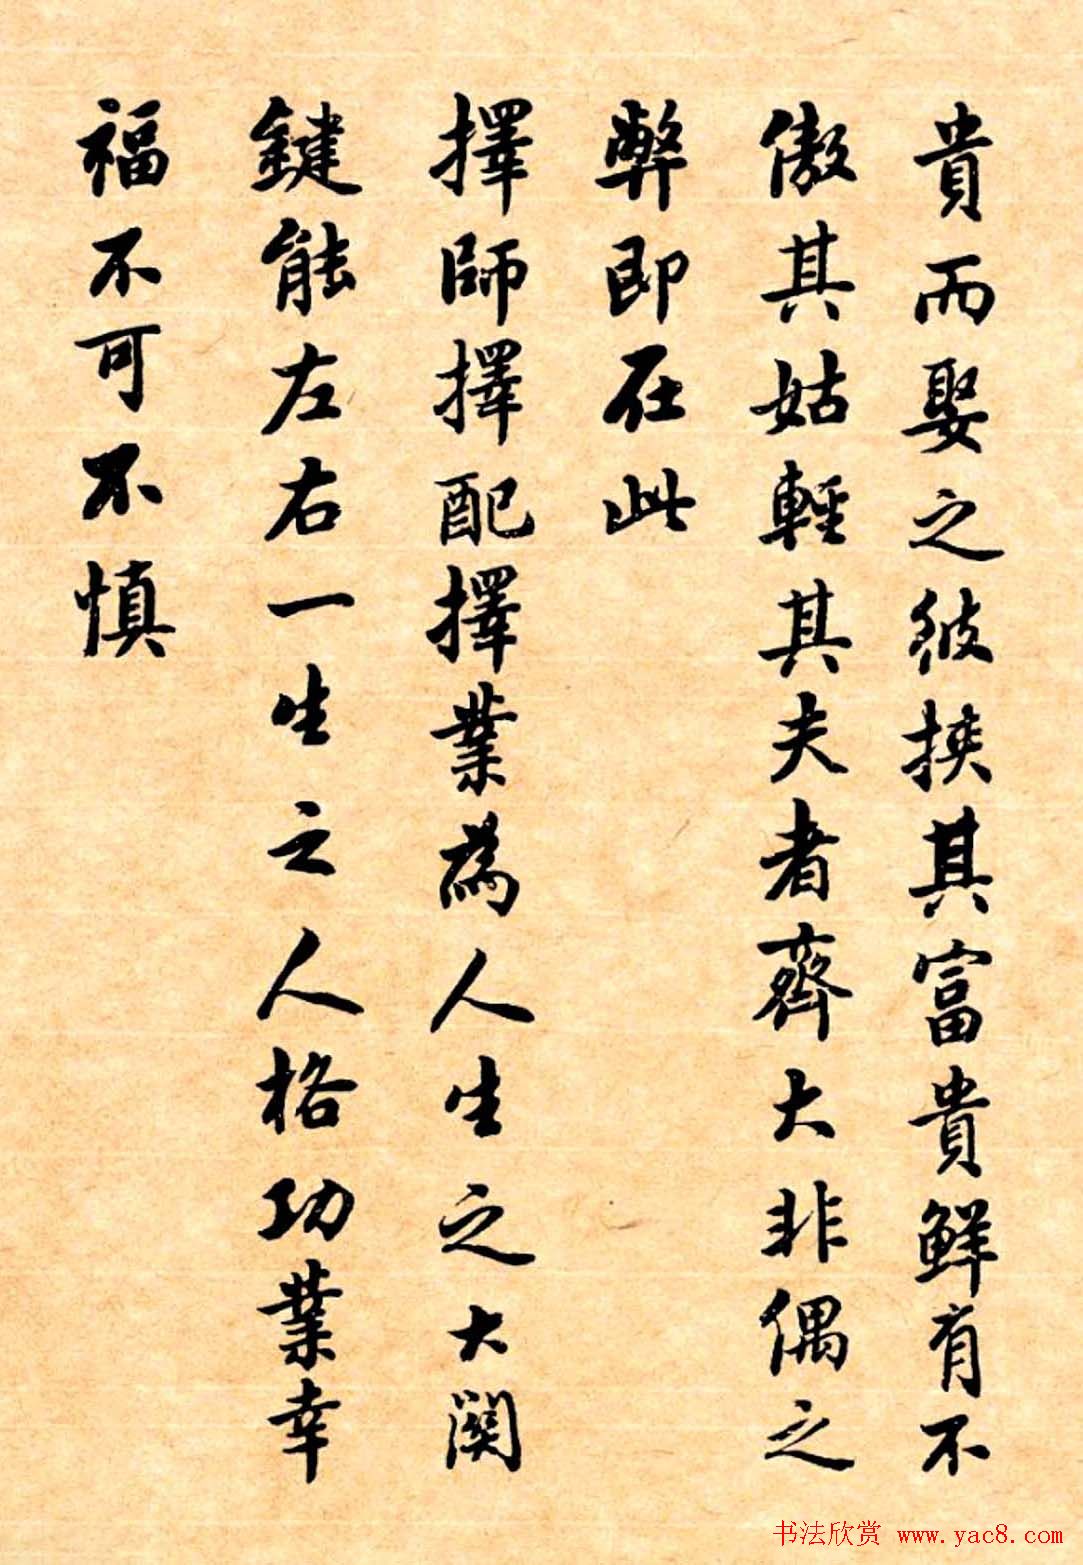 貴而娶之彼挾其富貴鮮有不
傲其姑輕其夫者齊大非偶之
弊即在此
擇師擇配擇業為人生之大関
鍵能左右一生之人格功業幸
福不可不慎
书法欣赏 www.yac8.com